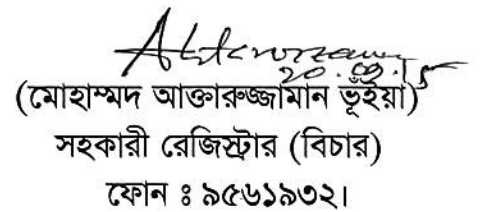 Akteruzzaman
20.09.15
(মোহাম্মদ আক্তারুজ্জামান ভূঁইয়া)
সহকারী রেজিস্ট্রার (বিচার)
ফোন ঃ ৯৫৬১৯৩২।